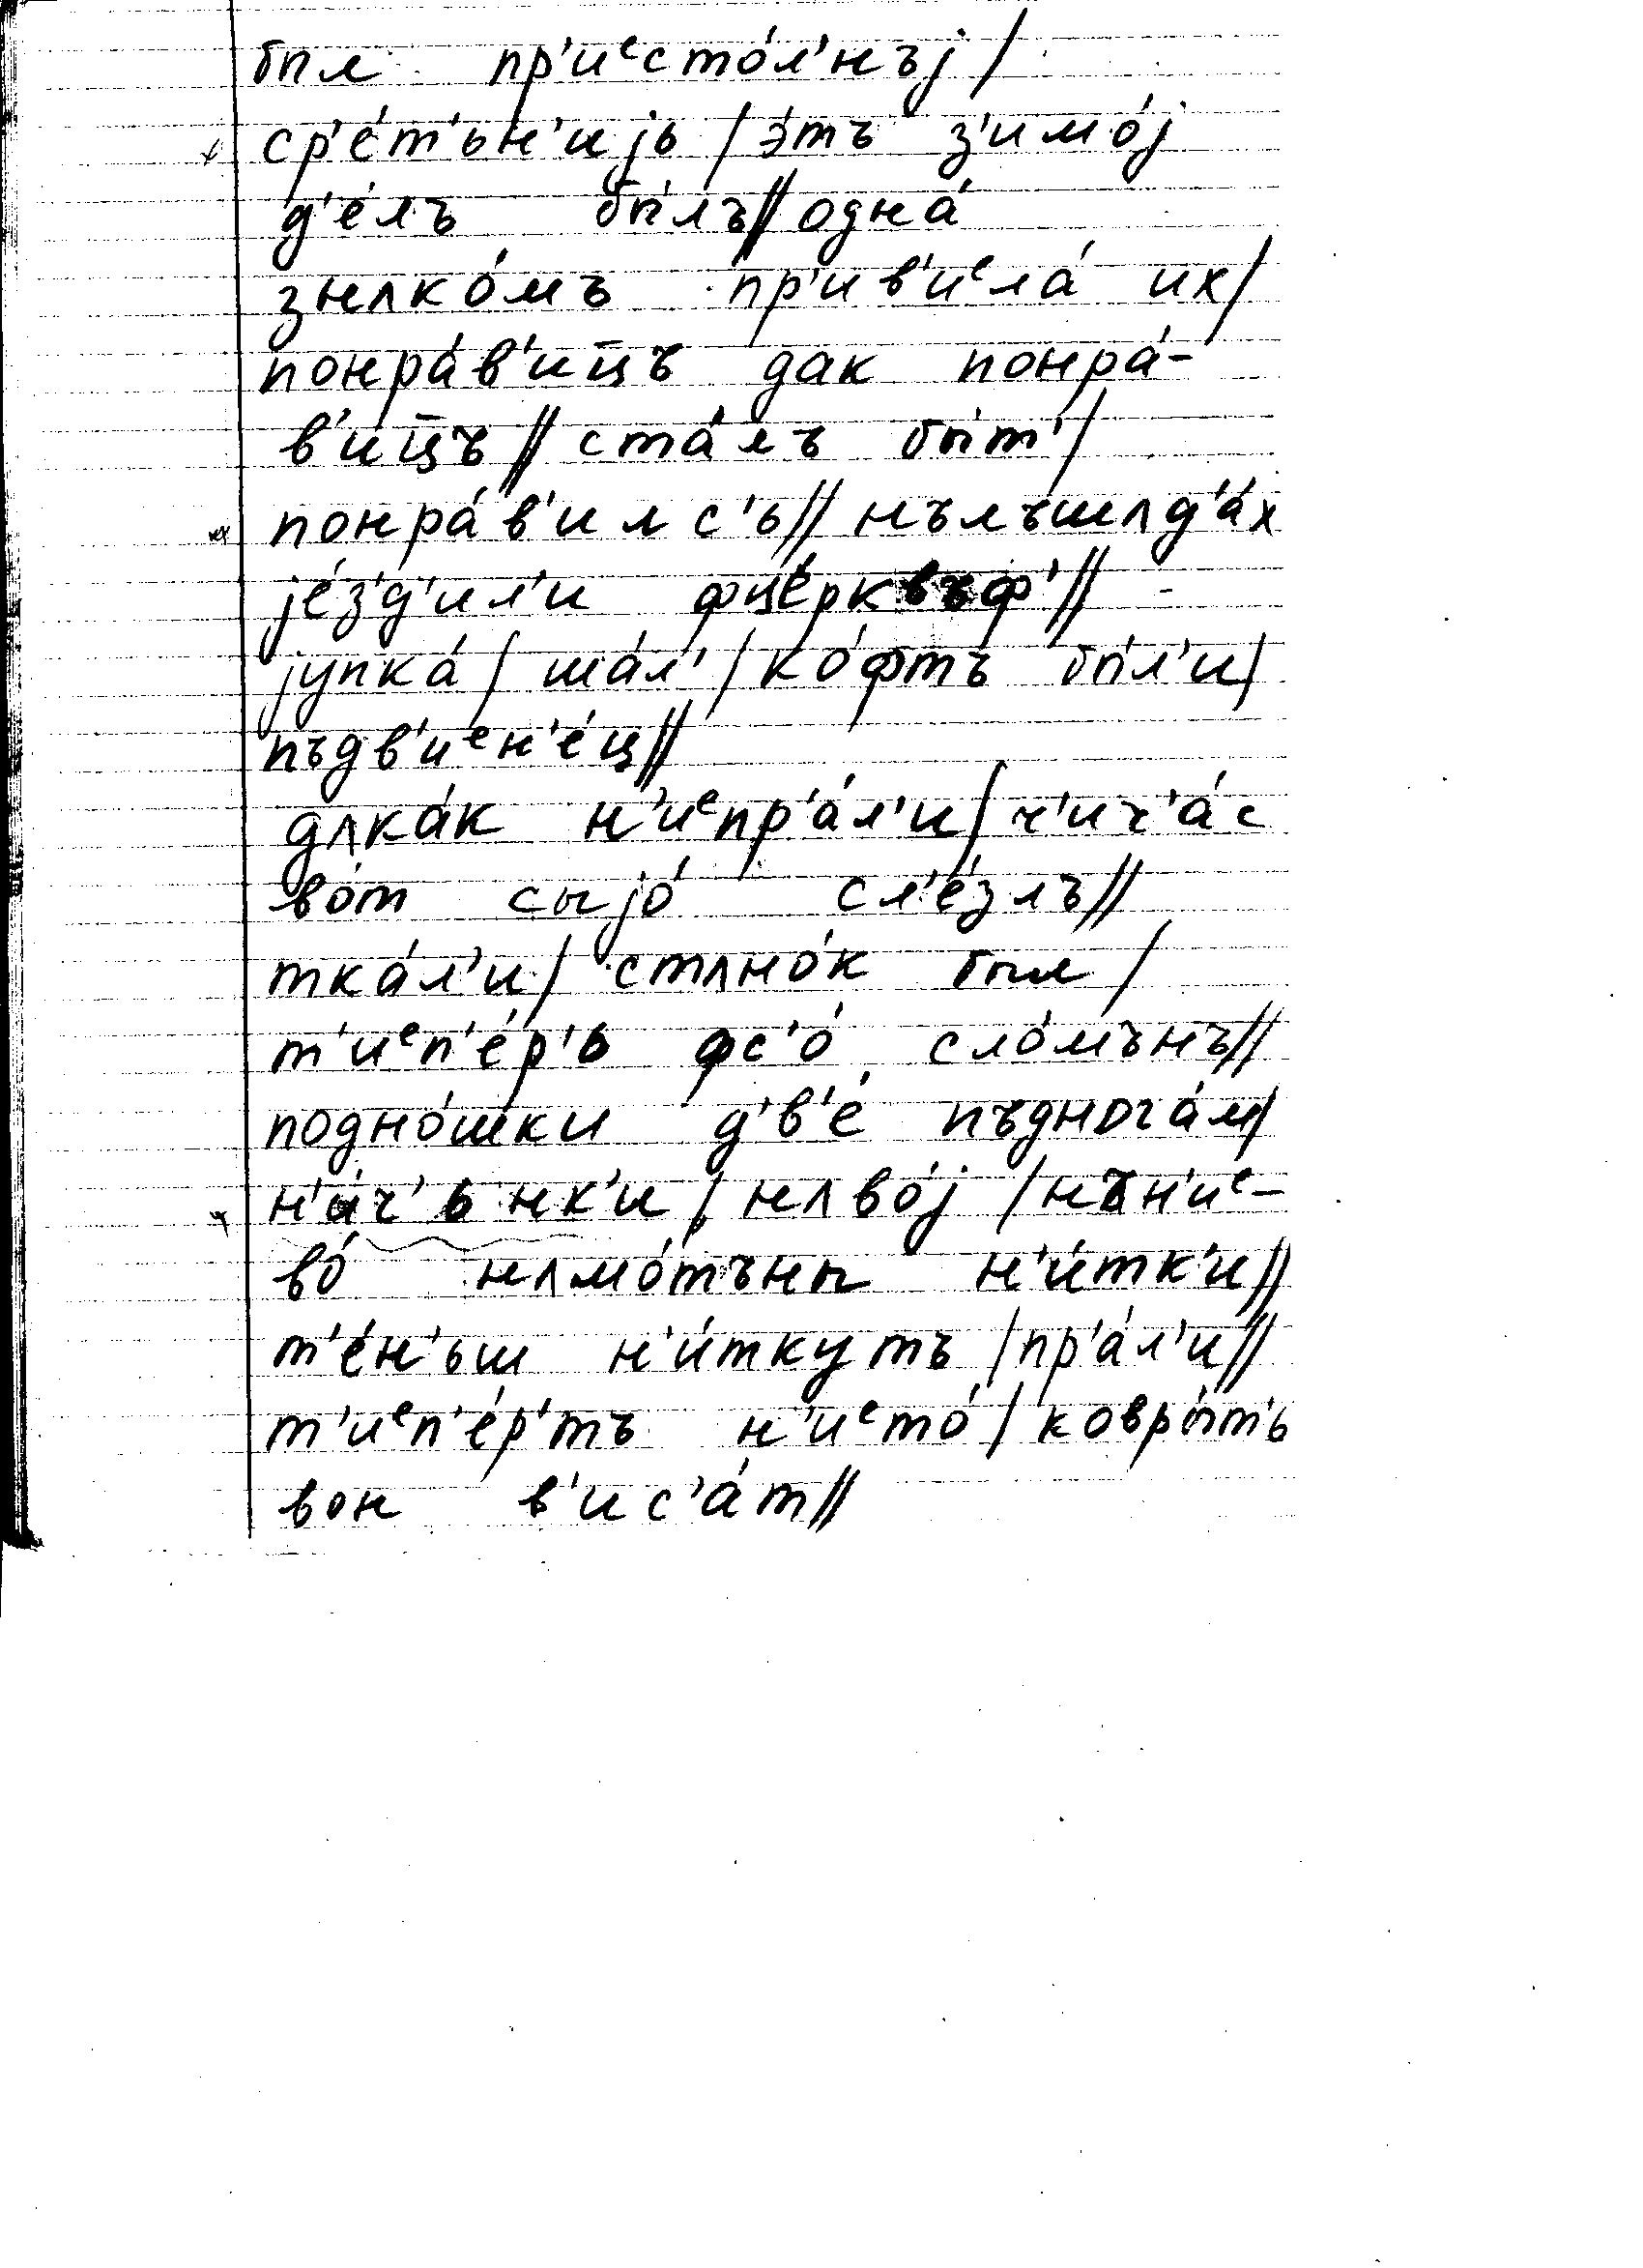 был пр'иᵉсто́л'нъј /
ср'е́т'ьн'иjь / э́тъ з'имо́ј
д'е́лъ бы́лъ // одна́
знʌко́мъ пр'ив'иᵉла́ их /
понра́в'иц̅ъ дак понра́-
в'иц̅ъ // ста́лъ быт' /
понра́в'илс'ь // нълъшʌд'а́х
је́з'д'ил'и фце́рквъф' //
јупка́ / ша́л' / ко́фтъ бы́л'и /
пъдв'иᵉн'е́ц //
дʌка́к н'иᵉпр'а́л'и / ч'ич'а́с
во́т сыјо́ сл'е́злъ //
тка́л'и / стʌно́к был /
т'иᵉп'е́р'ь фс'о́ сло́мънъ //
подно́шки д'в'е́ пъднога́м /
н'и́ч'ьнк'и / нʌво́ј / нън'иᵉ-
во́ нʌмо́тъны н'и́тк'и //
т'е́н'ьш н'и́ткутъ / пр'а́л'и //
т'иᵉп'е́р'тъ н'иᵉто́ / ковры́т'ь
вон в'ис'а́т //